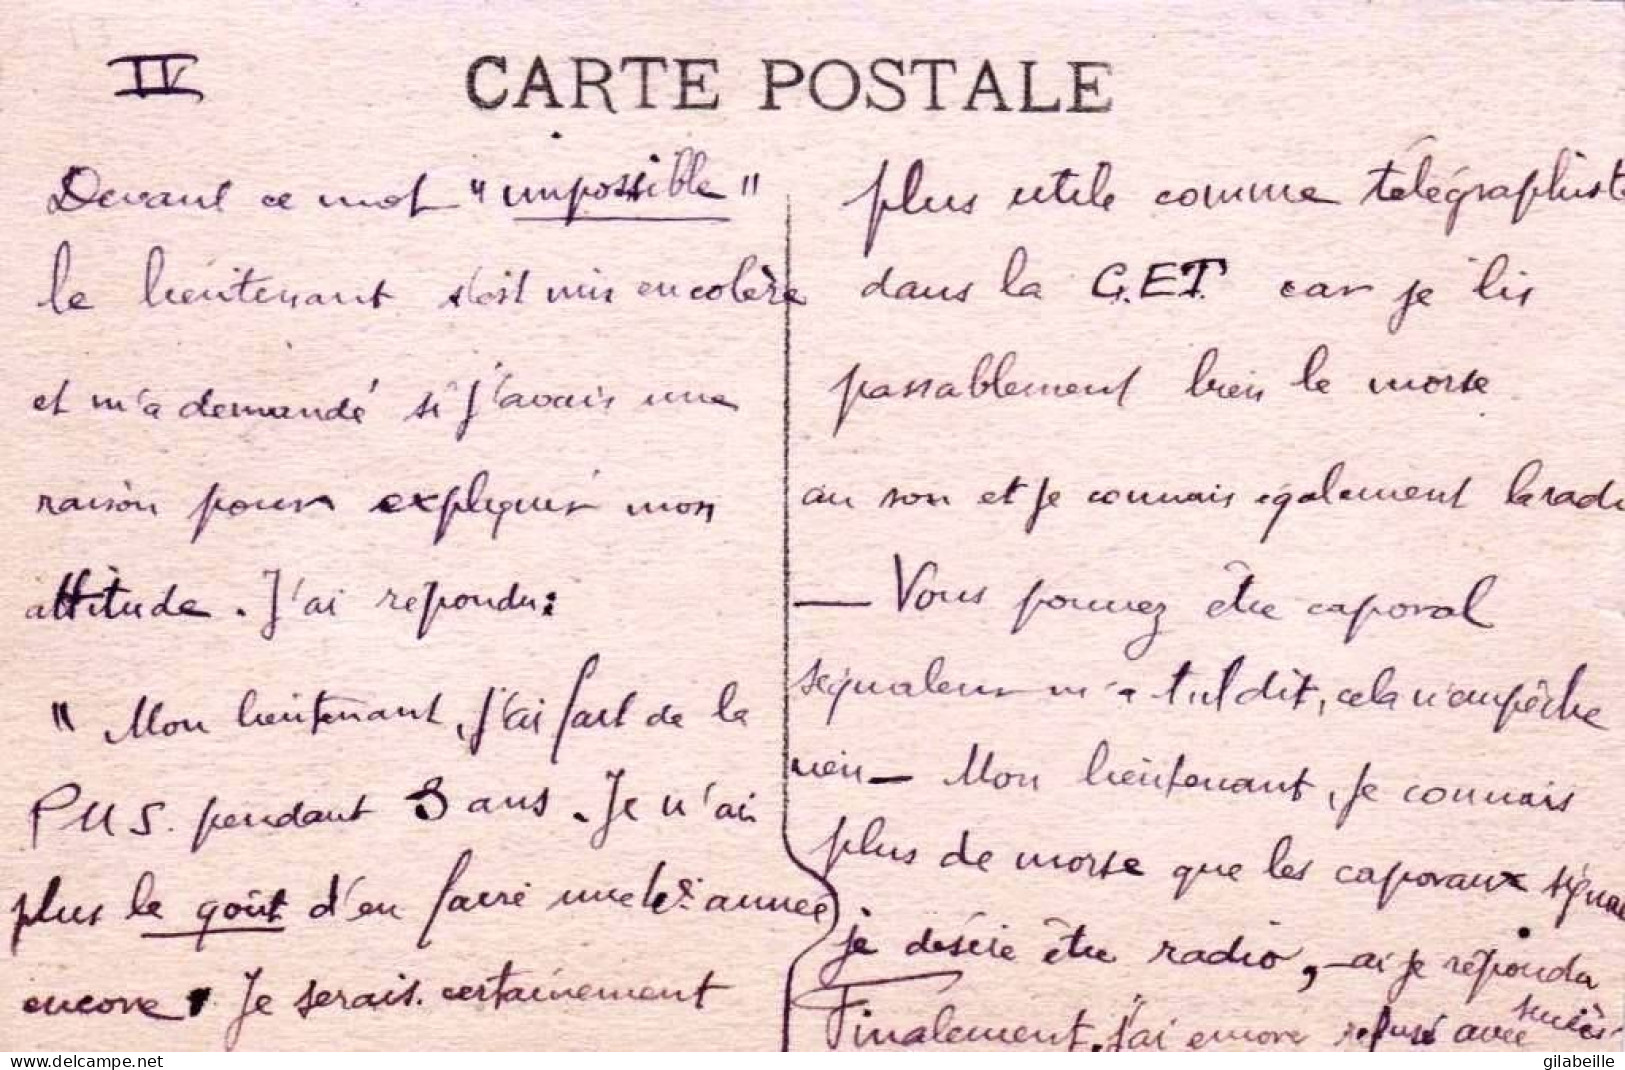 IV
CARTE POSTALE
Devant ce mot "impossible"
le lieutenant s'est mis en colère
et m'a demandé si j'avais une
raison pour expliquer mon
attitude. J'ai répondu:
"Mon lieutenant, j'ai fait de la
PMS. pendant 3 ans. Je n'ai
plus le goût d'en faire une année
encore. Je serais certainement
plus utile comme télégraphist
dans la C.E.T. car je lis
passablement bien le morse
au son et je connais également la radi
— Vous pouvez être caporal
signaleur m'a t il dit, cela n'empêche
rien — Mon lieutenant, je connais
plus de morse que les caporaux signal
je désire être radio, ai je répondu
Finalement, j'ai encore refusé avec
succès.
delcampe.net
gilabeille